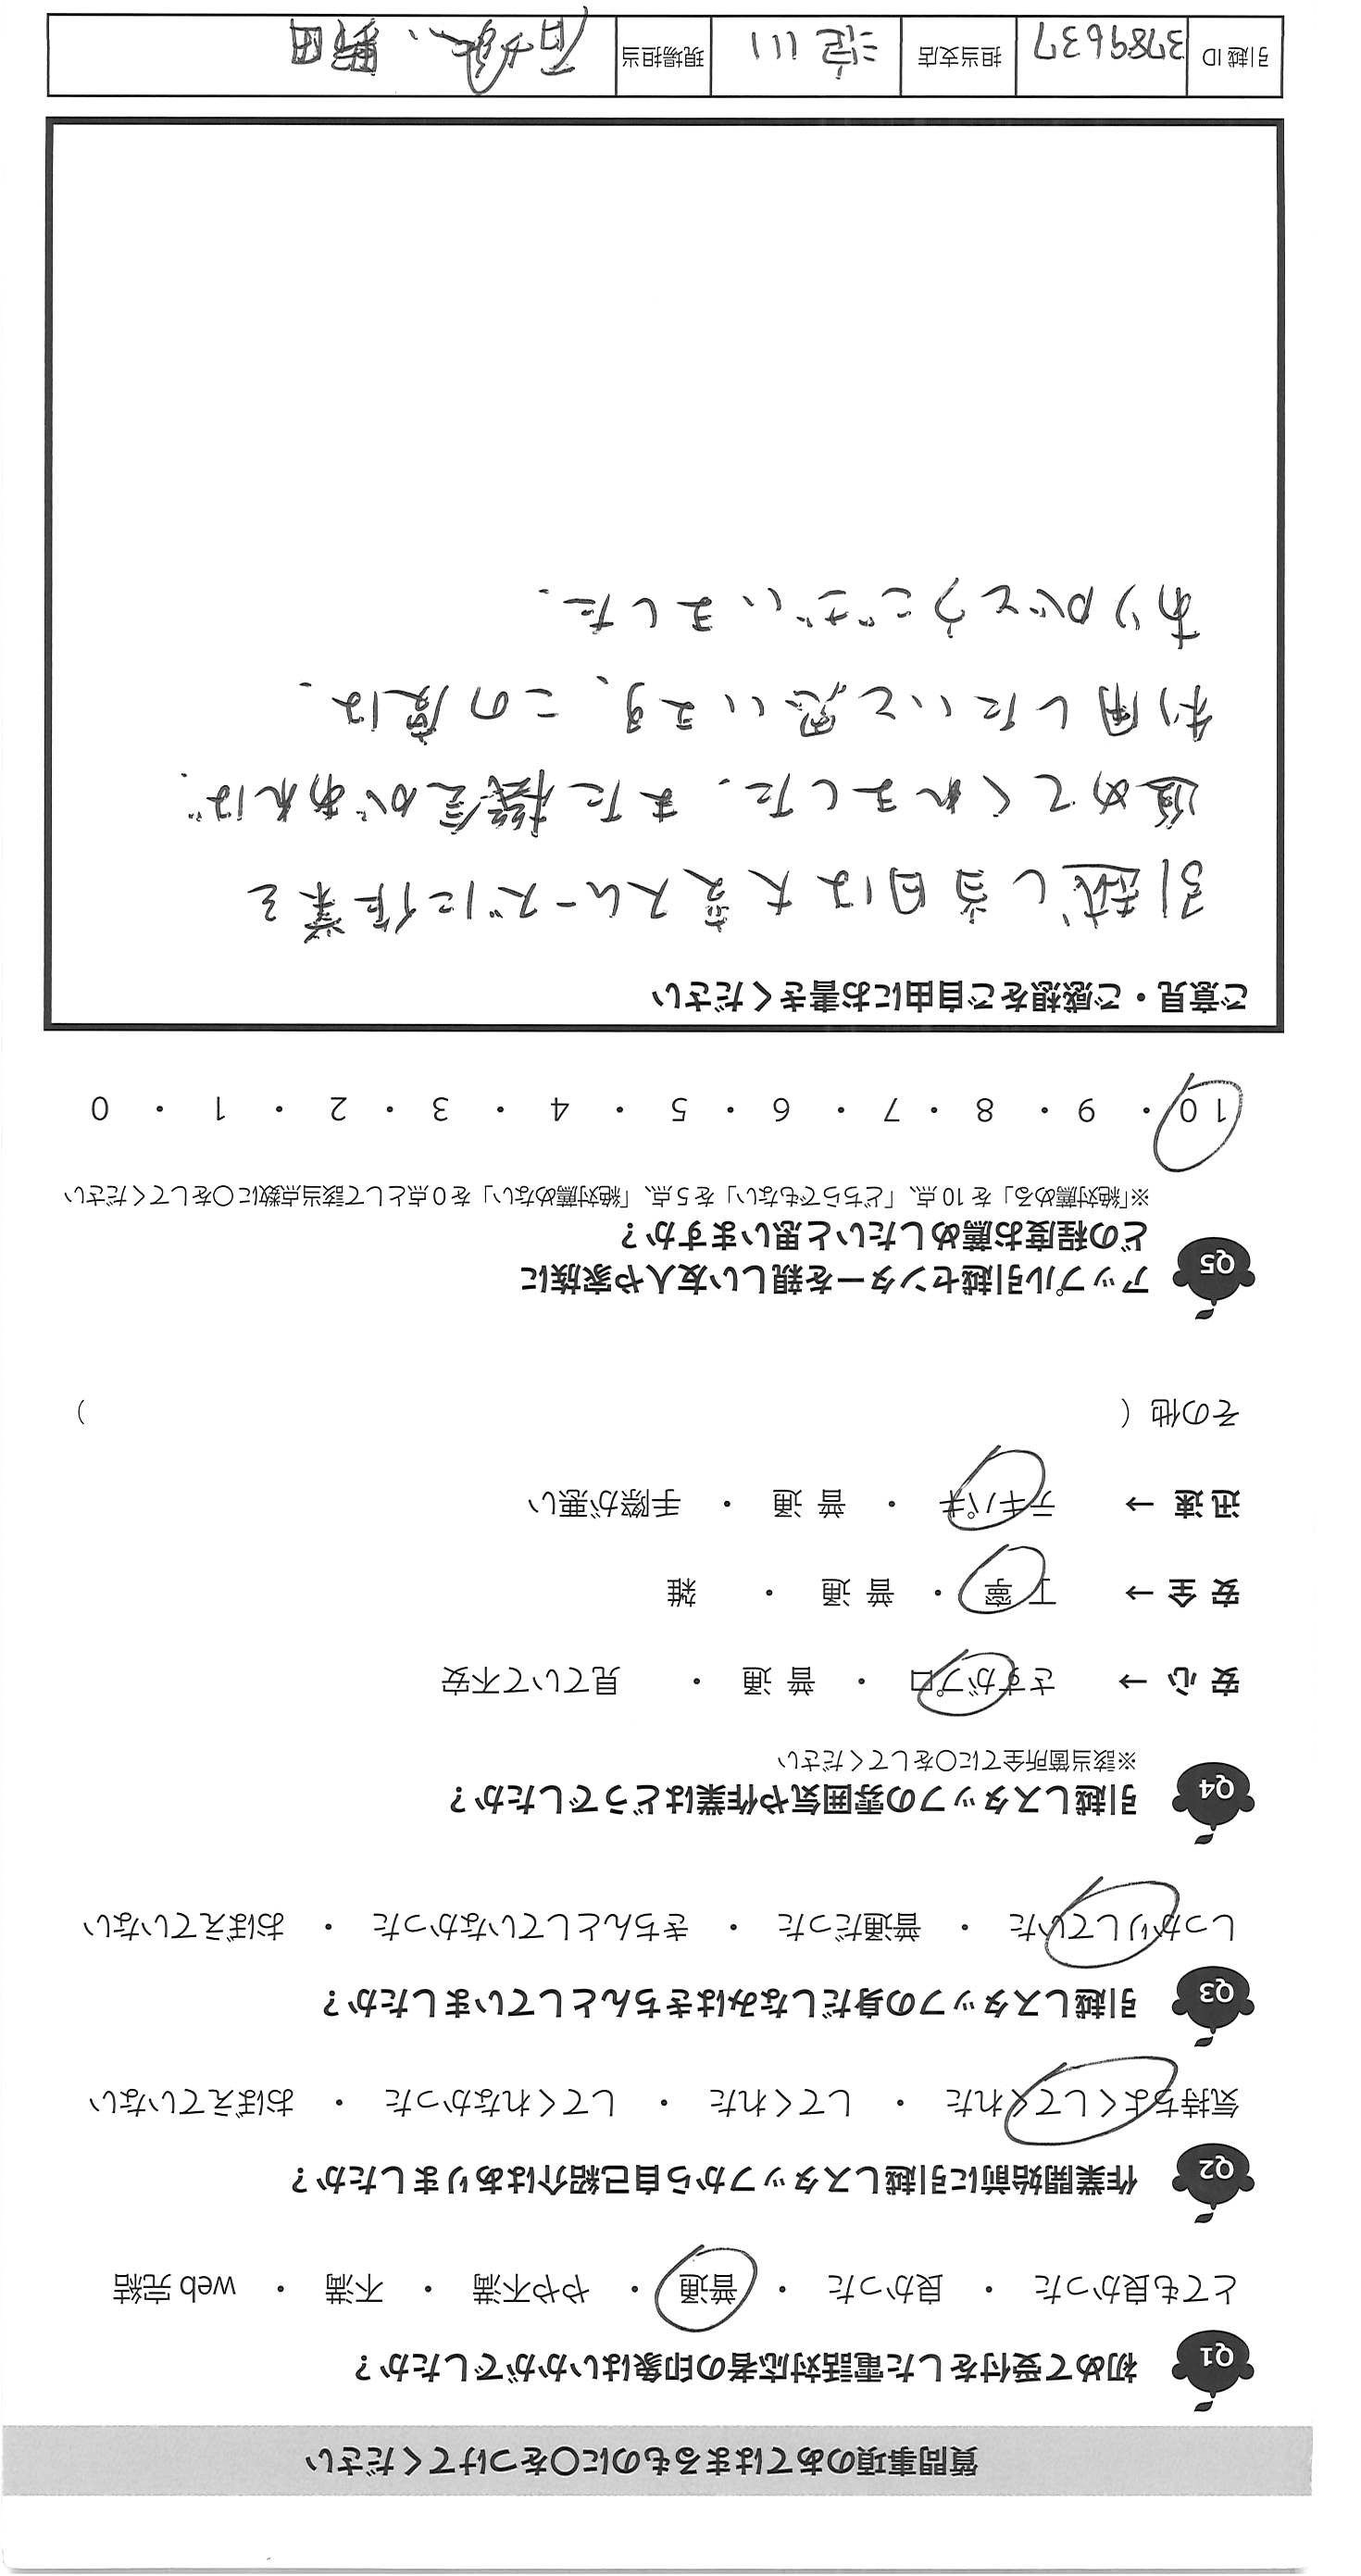 質問事項のあてはまるものに〇をつけてください
Q1 初めて受付をした電話対応者の印象はいかがでしたか？
とても良かった ・ 良かった ・ 普通 ・ やや不満 ・ 不満 ・ web 完結
Q2 作業開始前に引越しスタッフから自己紹介はありましたか？
気持ちよくしてくれた ・ してくれた ・ してくれなかった ・ おぼえていない
Q3 引越しスタッフの身だしなみはきちんとしていましたか？
しっかりしていた ・ 普通だった ・ きちんとしていなかった ・ おぼえていない
Q4 引越しスタッフの雰囲気や作業はどうでしたか？
※該当箇所全てに〇をしてください
安 心 → さすがプロ ・ 普 通 ・ 見ていて不安
安 全 → 丁 寧 ・ 普 通 ・ 雑
迅 速 → テキパキ ・ 普 通 ・ 手際が悪い
その他（ ）
Q5 アップル引越センターを親しい友人や家族に
どの程度お薦めしたいと思いますか？
※「絶対薦める」を 10 点、「どちらでもない」を 5 点、「絶対薦めない」を 0 点として該当点数に〇をしてください
10 ・ 9 ・ 8 ・ 7 ・ 6 ・ 5 ・ 4 ・ 3 ・ 2 ・ 1 ・ 0
ご意見・ご感想をご自由にお書きください
引越し当日は大変スムーズに作業を
進めてくれました。また機会があれば、
利用したいと思います、この度は、
ありがとうございました。
引越 ID 3789637 担当支店 淀川 現場担当 野田